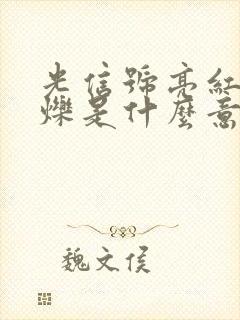 光信號亮紅
爍是什麼意
魏文侯